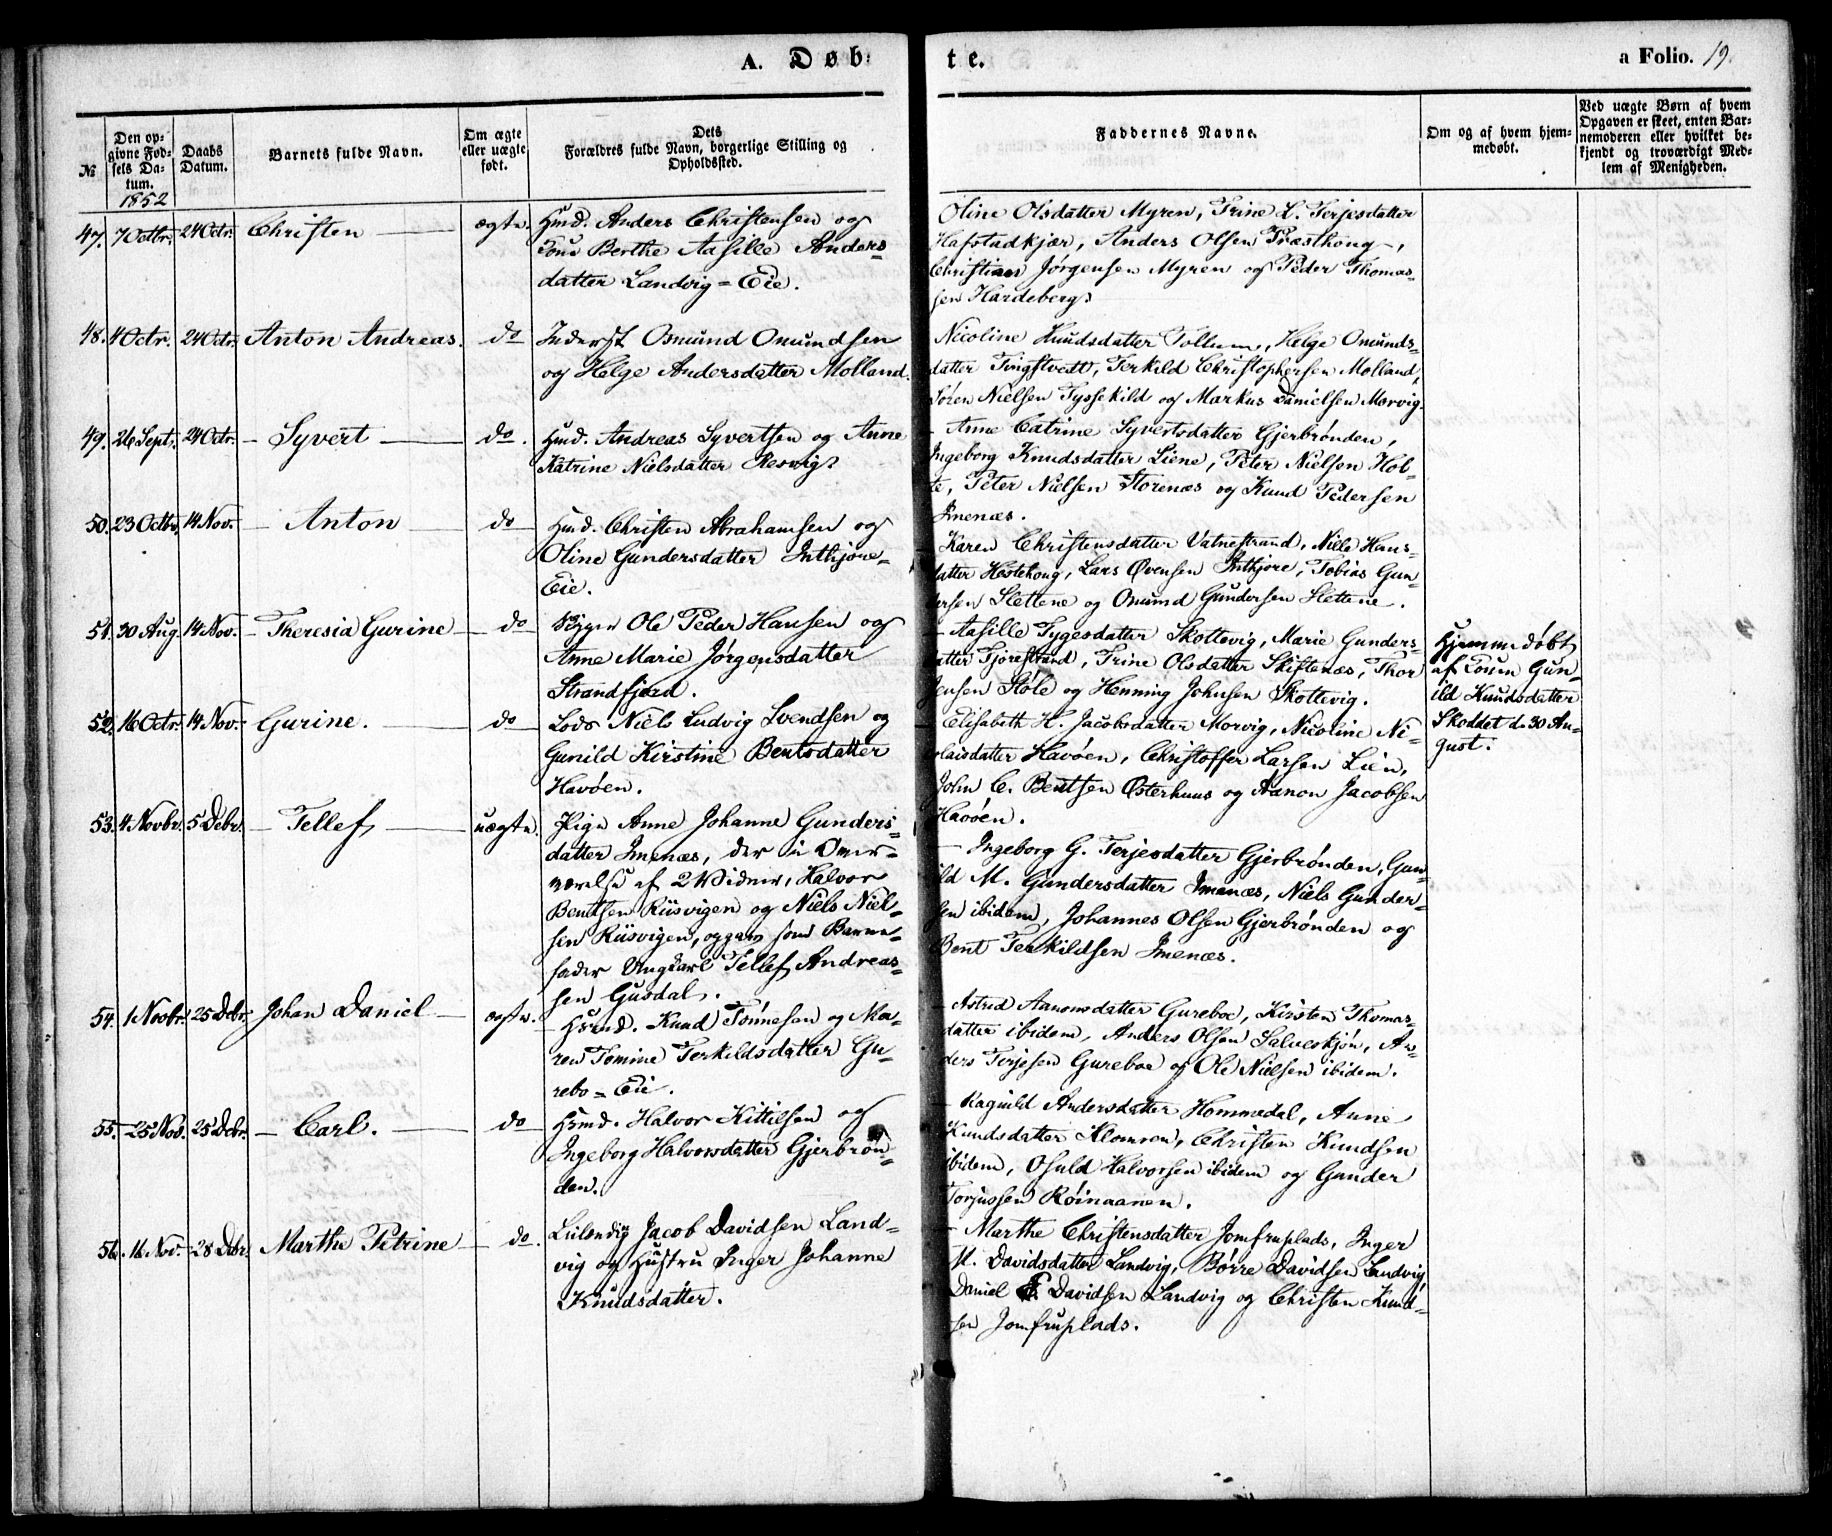 A. Døb-
te.
a Folio. 19.
№
Den op-
givne Fød-
sels Da-
tum.
1852
Daabs
Datum.
Barnets fulde Navn.
Om ægte
eller uægte
født.
Dets
Forældres fulde Navn, borgerlige Stilling og
Opholdssted.
Faddernes Navne.
Om og af hvem hjem-
medøbt.
Ved uægte Børn af hvem
Opgaven er skeet, enten Bar-
nemoderen eller hvilket be-
kjendt og troværdigt Med-
lem af Menigheden.
47. 7 Octbr. 24 Octr. Christen ægte.
Hmd. Anders Christensen og
Berthe Aasille Anders-
datter Landvig-Eie.
Oline Olsdatter Myren, Trine L. Terjesdatter
Hafstadkjær, Anders Olsen Præsthoug,
Christian Jørgensen Myren og Peder Thomas-
sen Hardeberg.
48. 4 Octr. 24 Octr. Anton Andreas. do
Inderst Osmund Omundsen
og Helge Andersdatter Molland.
Nicoline Knudsdatter Helge Omunds-
datter Tingstveit, Terkild Christophersen Molland,
Søren Nielsen Tyssekild og Markus Danielsen Morvig.
49. 26 Sept. 24 Octr. Syvert do.
Hmd. Andreas Syvertsen og Anne
Katrine Nielsdatter Resvig.
Anne Catrine Syvertsdatter Gjerbrønden,
Ingeborg Knudsdatter Liene, Peter Nielsen Hol-
te, Peter Nielsen Storenæs og Knud Pedersen
Imenæs.
50. 23 Octbr. 14 Nov. Anton do
Hmd. Christen Abrahamsen og
Oline Gundersdatter Inthjøre-
Eie.
Karen Christensdatter Vatnestrand, Nille Hans-
datter Hestehoug, Lars Øvensen Inthjøre, Tobias Gun-
dersen Slettene og Omund Gundersen Slettene.
51. 30 Aug. 14 Nov. Theresia Gurine do
Bygger Ole Peder Hansen og
Anne Marie Jørgensdatter
Strandfjord.
Aasille Tygesdatter Skottevig, Marie Gunders-
datter Fjørestrand, Trine Olsdatter Skiftenæs, Thor
Jensen Støle og Henning Johnsen Skottevig.
Hjemmedøbt
af Konen Gun-
ild Knudsdatter
Skoddet d. 30 Au-
gust.
52. 16 Octr. 14 Nov. Gurine. do
Lods Niels Ludvig Svendsen og
Gunild Kirstine Bentsdatter
Havøen.
Elisabeth H. Jacobsdatter Morvig, Nicoline Ni-
colaisdatter Havøen, Christoffer Larsen Lien,
John C. Bentsen Østerhuus og Aanon Jacobsen
Havøen.
53. 4 Novbr. 5 Debr. Tellef uægte.
Pige Anne Johanne Gunders-
datter Imenæs, der i Over-
værelse af 2 Vidner, Halvor
Bentsen Riisvigen og Niels Niel-
sen Riisvigen, opgav som Barne-
fader Ungkarl Tellef Andreas-
sen Gusdal.
Ingeborg G. Terjesdatter Gjerbrønden, Gun-
ild M. Gundersdatter Imenæs, Niels Gunder-
sen ibidem, Johannes Olsen Gjerbrønden og
Bent Terkildsen Imenæs.
54. 1 Novbr. 25 Debr. Johan Daniel ægte.
Hsmd. Knud Tønnesen og Ma-
ren Tomine Terkildsdatter Gu-
rebo-Eie.
Astrid Aanonsdatter Gureboe, Kirsten Thomas-
datter ibidem, Anders Olsen Salveskjøn, An-
ders Terjesen Gureboe og Ole Nielsen ibidem.
55. 25 Nov. 25 Debr. Carl. do
Hsmd. Halvor Kittilsen og
Ingeborg Halvorsdatter Gjerbrøn-
den.
Ragnild Andersdatter Hommedal, Anne
Knudsdatter Klomren, Christen Knudsen
ibidem, Osuld Halvorsen ibidem og Gunder
Torjussen Røinaanen.
56. 16 Nov. 28 Debr. Marthe Petrine do.
Leilending Jacob Davidsen Land-
vig og Hustru Inger Johanne
Knudsdatter.
Marthe Christensdatter Jomfruplads, Inger
M. Davidsdatter Landvig, Børre Davidsen Landvig,
Daniel Davidsen Landvig og Christen Knud-
sen Jomfruplads.